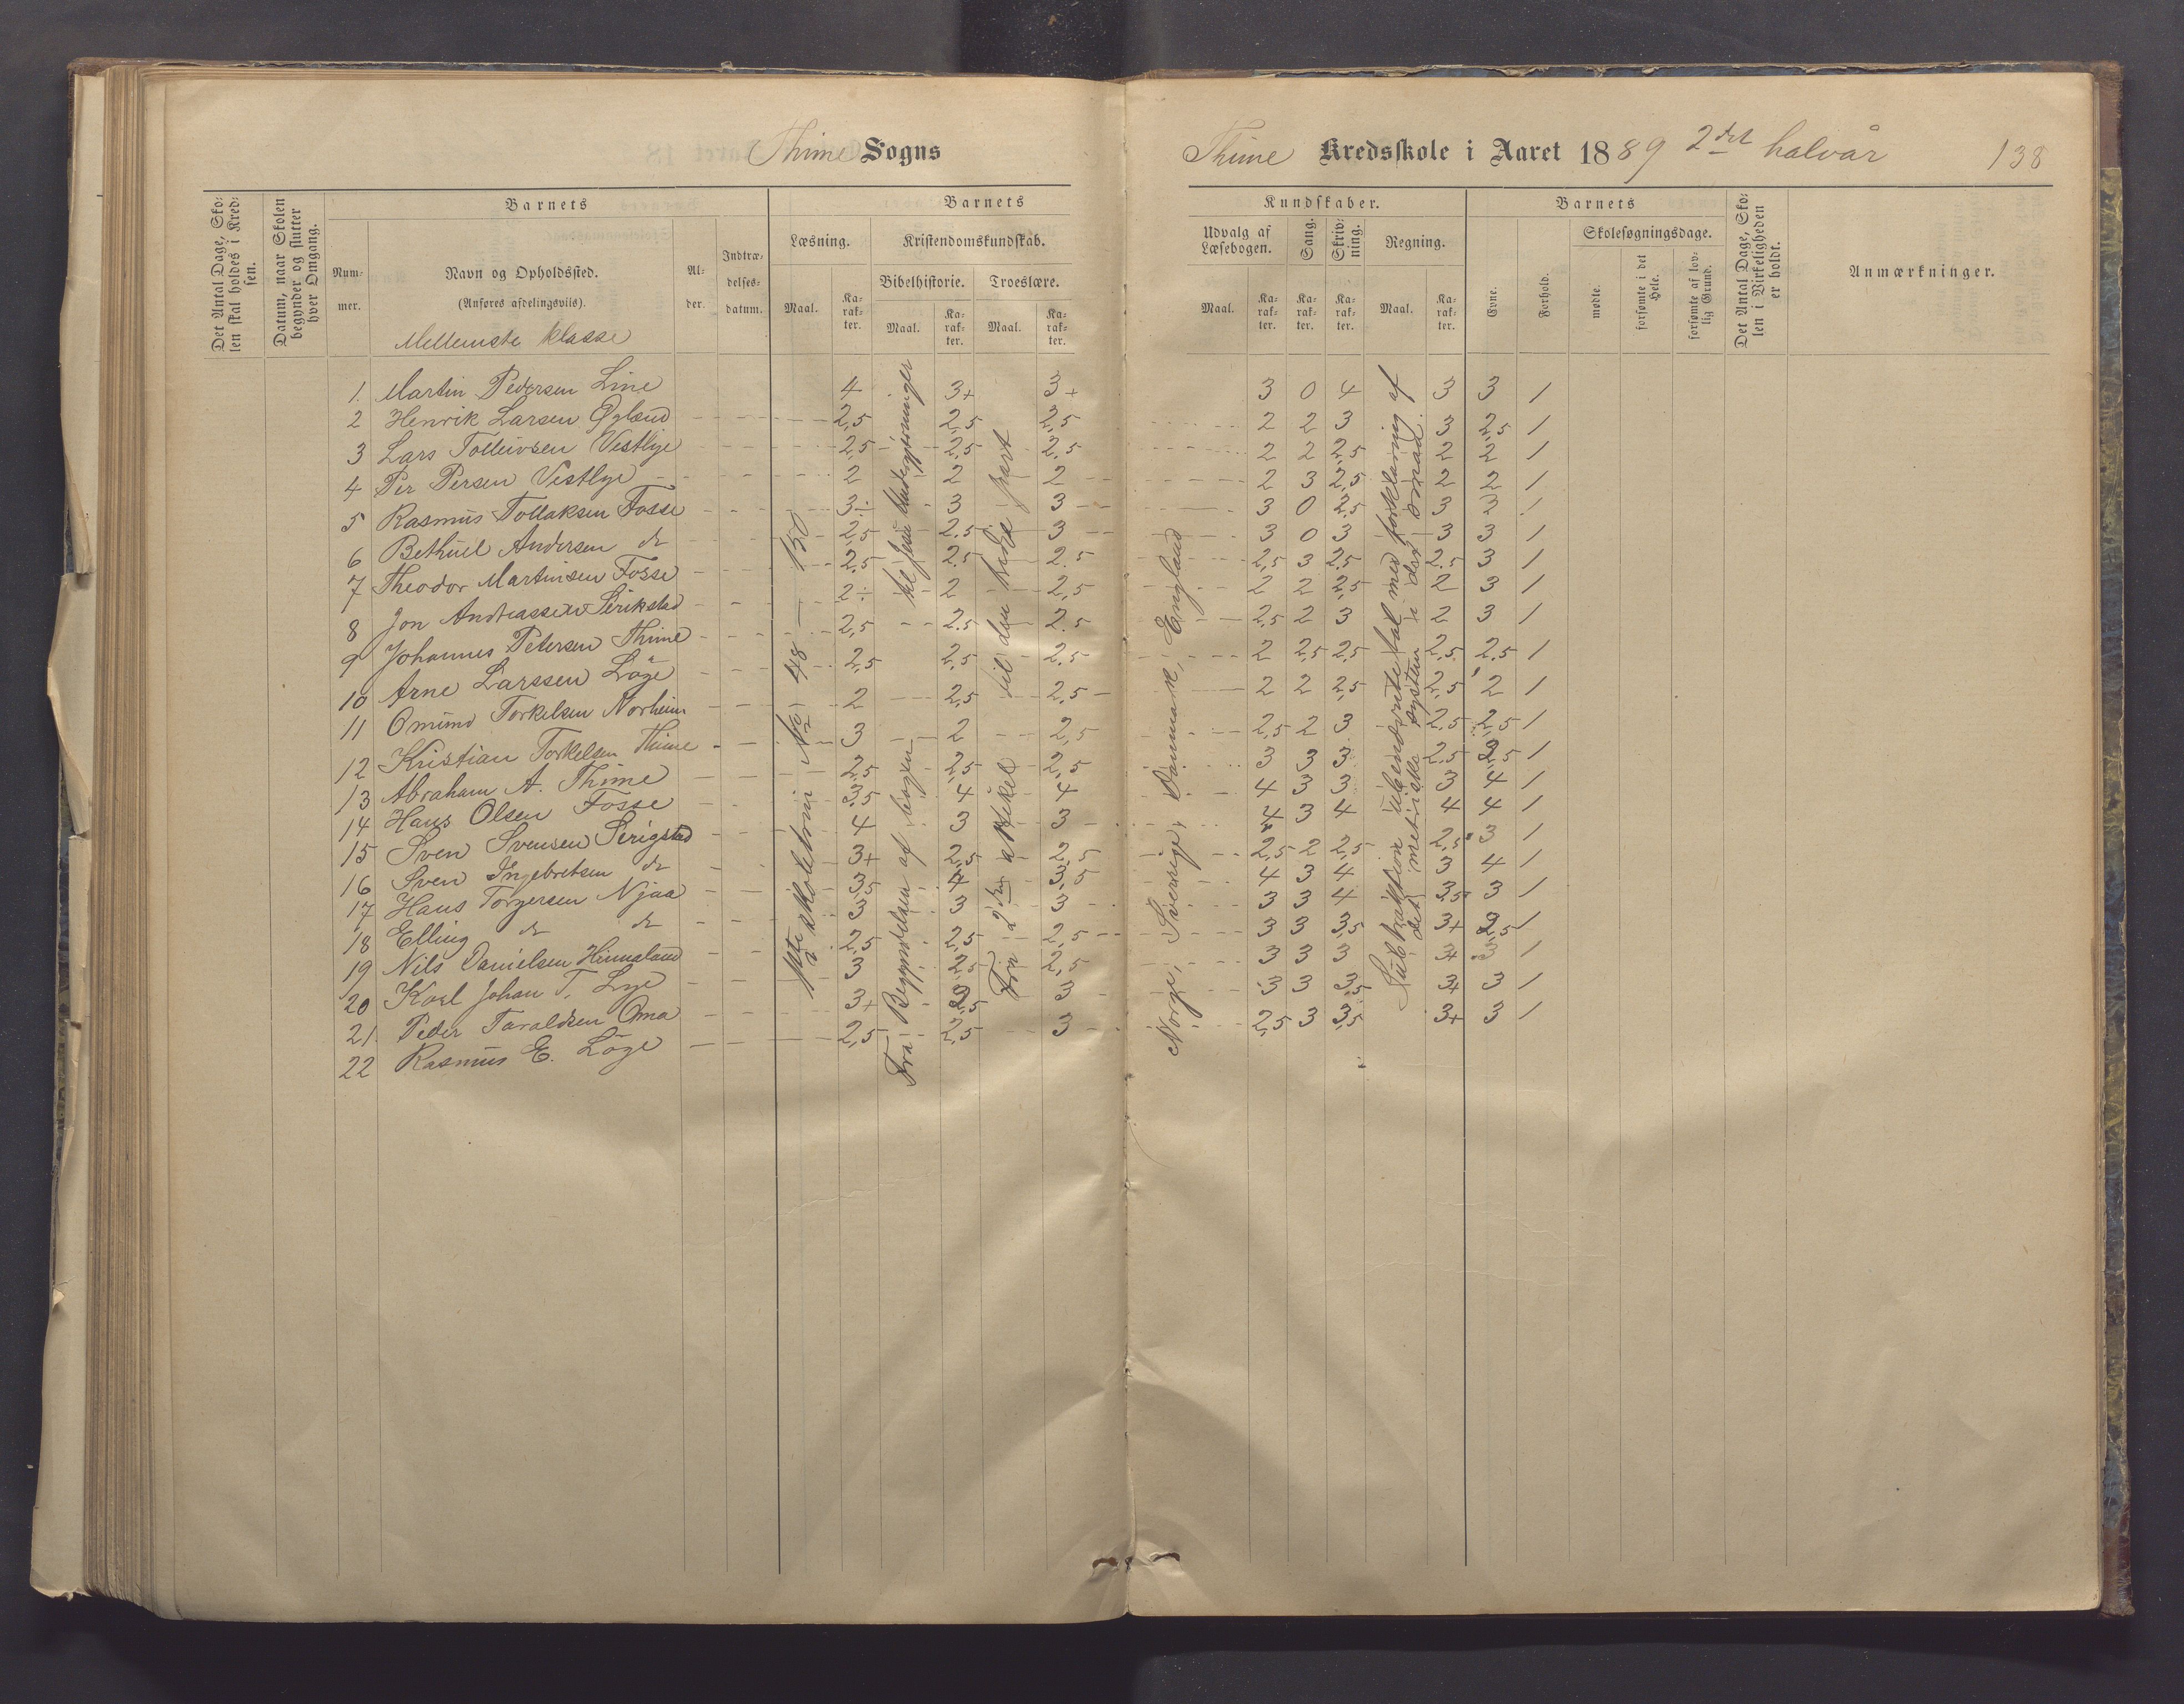 Thime Sogns
Det Antal Dage, Sko-
len skal holdes i Kred-
sen.
Datum, naar Skolen
begynder og slutter
hver Omgang.
Barnets
Num-
mer.
Navn og Opholdssted.
(Anføres afdelingsviis).
Mellemste klasse
Al-
der.
Indtræ-
delses-
datum.
Barnets
Læsning.
Kristendomskundskab.
Bibelhistorie.
Troeslære.
Maal.
Ka-
rak-
ter.
Maal.
Ka-
rak-
ter.
Maal.
Ka-
rak-
ter.
1. Martin Pedersen Line 4 3+ 3+
2 Henrik Larsen Øglend 2,5 2,5 2,5
3 Lars Tolleivsen Vestlye 2,5 2,5 2,5
4 Per Persen Vestlye 2 2 2
5 Rasmus Tollaksen Fosse 3÷ 3 3
6 Bethuel Andersen do 2,5 2,5 3
7 Theodor Martinsen Fosse 2,5 2,5 2,5
8 Jon Andreassen Serikstad 2÷ 2 2,5
9 Johannes Petersen Thime 2,5 2,5 2,5
10 Arne Larssen Löge 2,5 2,5 2,5
11 Omund Torkelsen Norheim 2 2,5 2,5
12 Kristian Torkelsen Thime 3 2 2,5
13 Abraham A. Thime 2,5 2,5 2,5
14 Hans Olsen Fosse 3,5 4 4
15 Sven Svensen Serigstad 4 3 3
16 Sven Ingebretsen do 3+ 2,5 2,5
17 Hans Torgersen Njaa 3,5 4 3,5
18 Elling do do 3 3 3
19 Nils Danielsen Hinnaland 2,5 2,5 2,5
20 Karl Johan T. Lye 3 2,5 2,5
21. Peder Taraldsen Oma 3+ 2,5 3
22 Rasmus E. Löge 2,5 2,5 3
1ste skoletrin No 48 — 130
Fra Begyndelsen af bogen
til Jesu Undergjerninger
Fra 2den artikel til den tredie part
Thime Kredsskole i Aaret 1889 2det halvår
138
Kundskaber.
Udvalg af
Læsebogen.
Sang.
Skriv-
ning.
Regning.
Maal.
Ka-
rak-
ter.
Ka-
rak-
ter.
Ka-
rak-
ter.
Maal.
Ka-
rak-
ter.
Barnets
Evne.
Forhold.
Skolesøgningsdage.
mødte.
forsømte i det
Hele.
forsømte af lov-
lig Grund.
Det Antal Dage, Sko-
len i Virkeligheden
er holdt.
Anmærkninger.
3 0 4 3 3 1
2 2 3 3 2,5 1
2 2 2,5 2 2 1
2 3 2,5 2 2 1
3 0 2,5 3 3 1
3 0 3 3 3 1
2,5 3 2,5 2.5 3 1
2 2 2,5 2 3 1
2,5 2 3 2 3 1
2 2,5 2,5 2,5 2,5 1
2 2 2,5 2,5 2 1
2,5 2 3 2,5 2,5 1
3 3 3 2,5 2,5 1
4 3 3 3 4 1
4 3 4 4 4 1
2,5 2 2,5 2,5 3 1
4 3 4 3 4 1
3 3 4 3,5 3 1
3 3 3,5 3+ 2,5 1
3 3 3 3+ 3 1
3 3 3,5 3+ 3 1
2,5 3 3,5 3+ 3 1
Norge, Sverrige, Danmark, England
Subtraktion ubenævnte tal med forklaring af
det metriske system